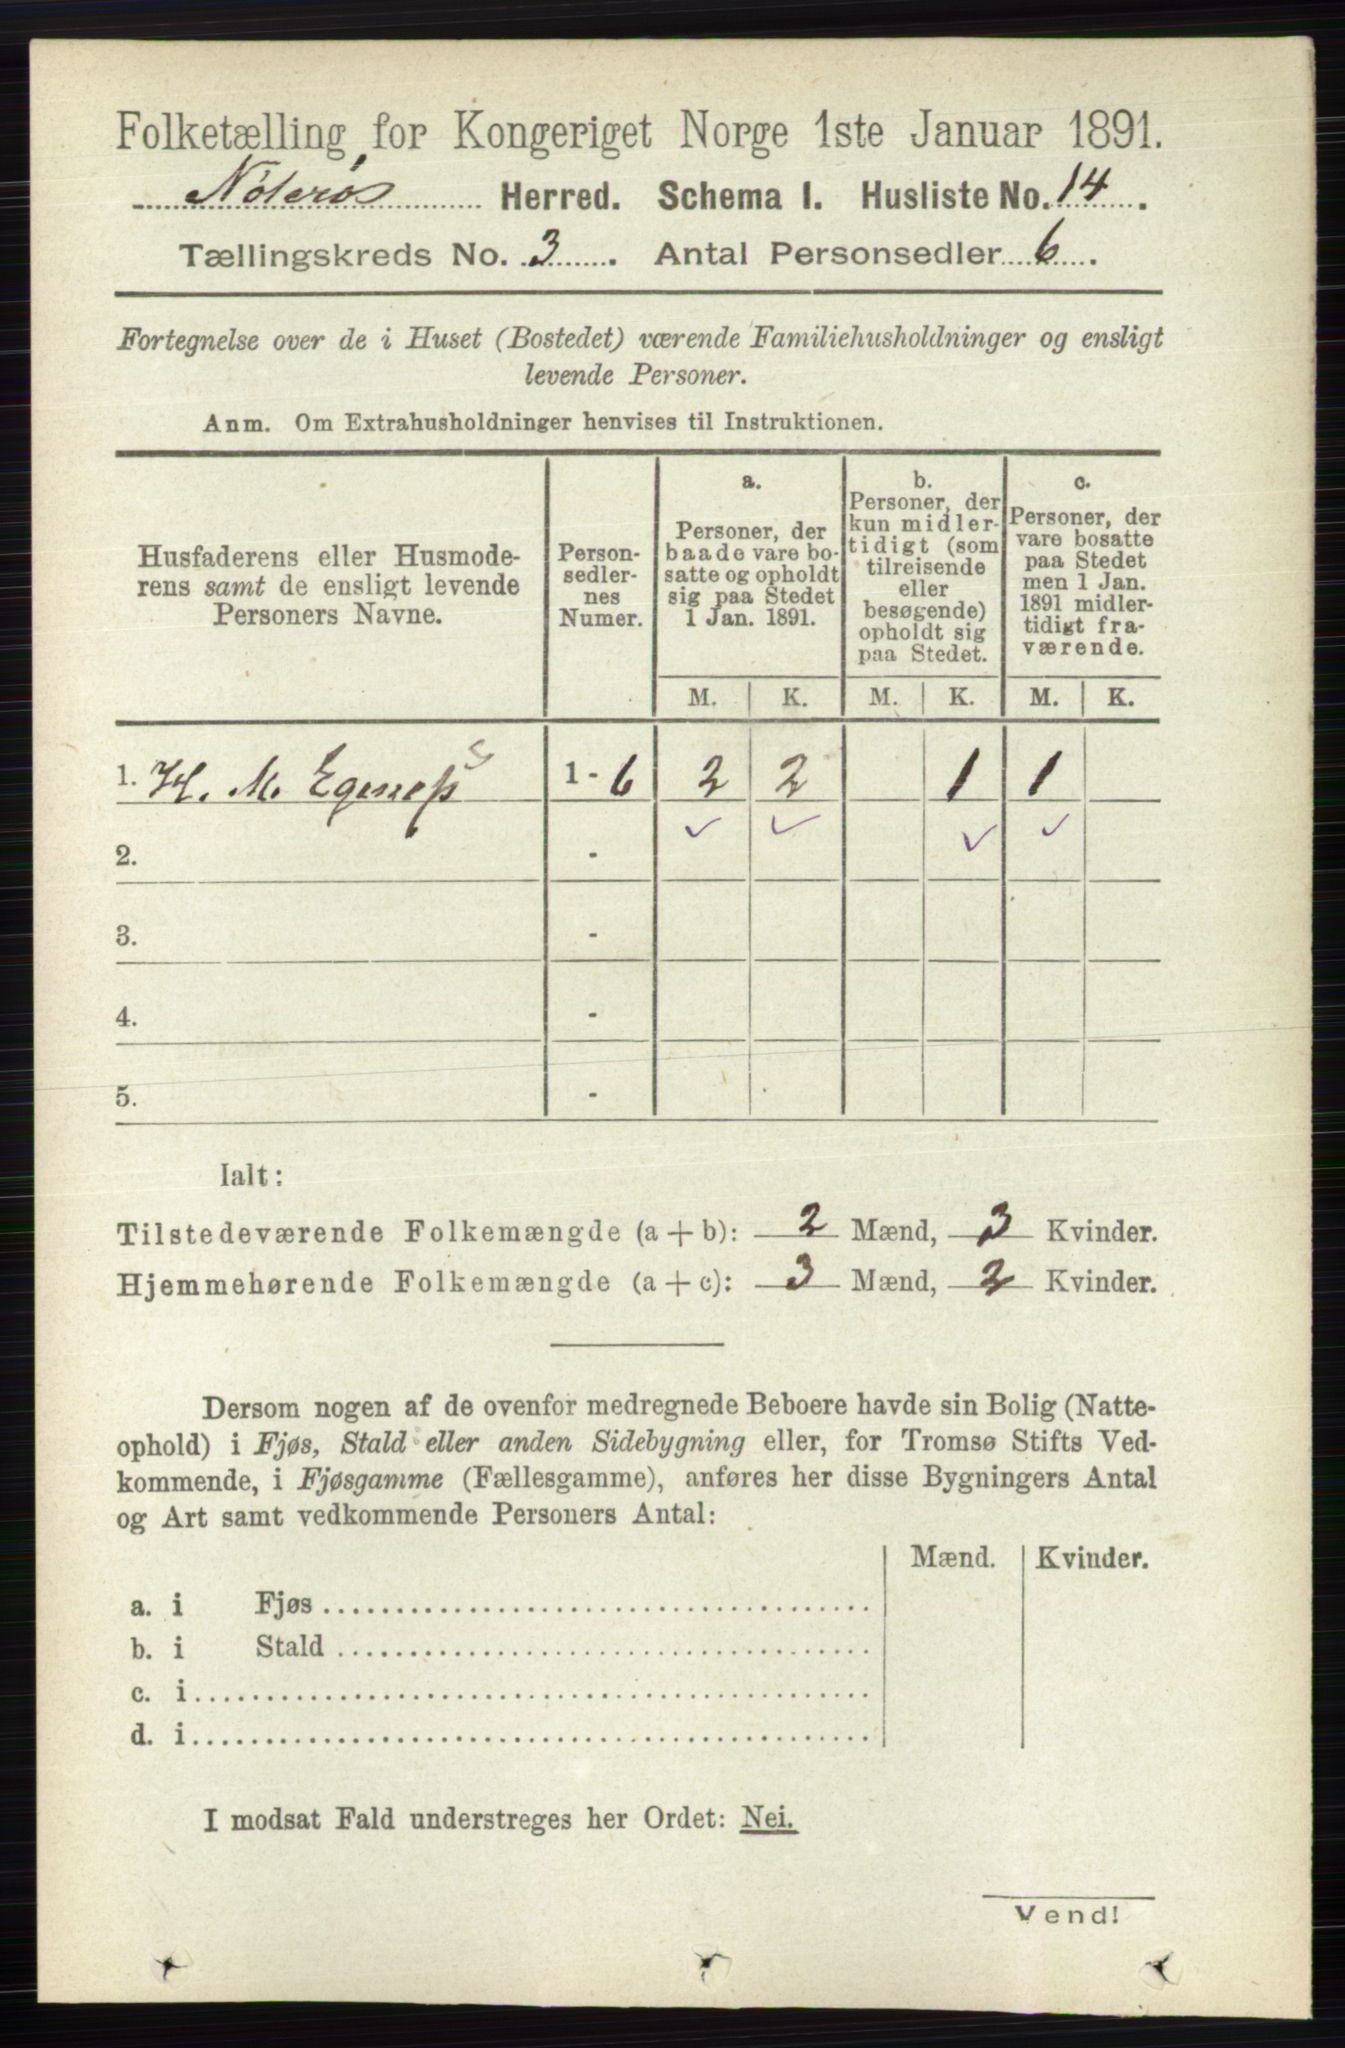 Folketælling for Kongeriget Norge 1ste Januar 1891.
Nøterø Herred. Schema 1. Husliste No. 14.
Tællingskreds No. 3. Antal Personsedler 6.
Fortegnelse over de i Huset (Bostedet) værende Familiehusholdninger og ensligt
levende Personer.
Anm. Om Extrahusholdninger henvises til Instruktionen.
Husfaderens eller Husmode-
rens samt de ensligt levende
Personers Navne.
Person-
sedler-
nes
Numer.
a.
Personer, der
baade vare bo-
satte og opholdt
sig paa Stedet
1 Jan. 1891.
b.
Personer, der
kun midler-
tidigt (som
tilreisende
eller
besøgende)
opholdt sig
paa Stedet.
c.
Personer, der
vare bosatte
paa Stedet
men 1 Jan.
1891 midler-
tidigt fra-
værende.
M. K. M. K. M. K.
1. H. M. Egeness 1 - 6 2 2 1 1
2. -
3. -
4. -
5. -
Ialt:
Tilstedeværende Folkemængde (a + b): 2 Mænd, 3 Kvinder.
Hjemmehørende Folkemængde (a + c): 3 Mænd, 2 Kvinder.
Dersom nogen af de ovenfor medregnede Beboere havde sin Bolig (Natte-
ophold) i Fjøs, Stald eller anden Sidebygning eller, for Tromsø Stifts Ved-
kommende, i Fjøsgamme (Fællesgamme), anføres her disse Bygningers Antal
og Art samt vedkommende Personers Antal:
Mænd. Kvinder.
a. i Fjøs
b. i Stald
c. i
d. i
I modsat Fald understreges her Ordet: Nei.
Vend!